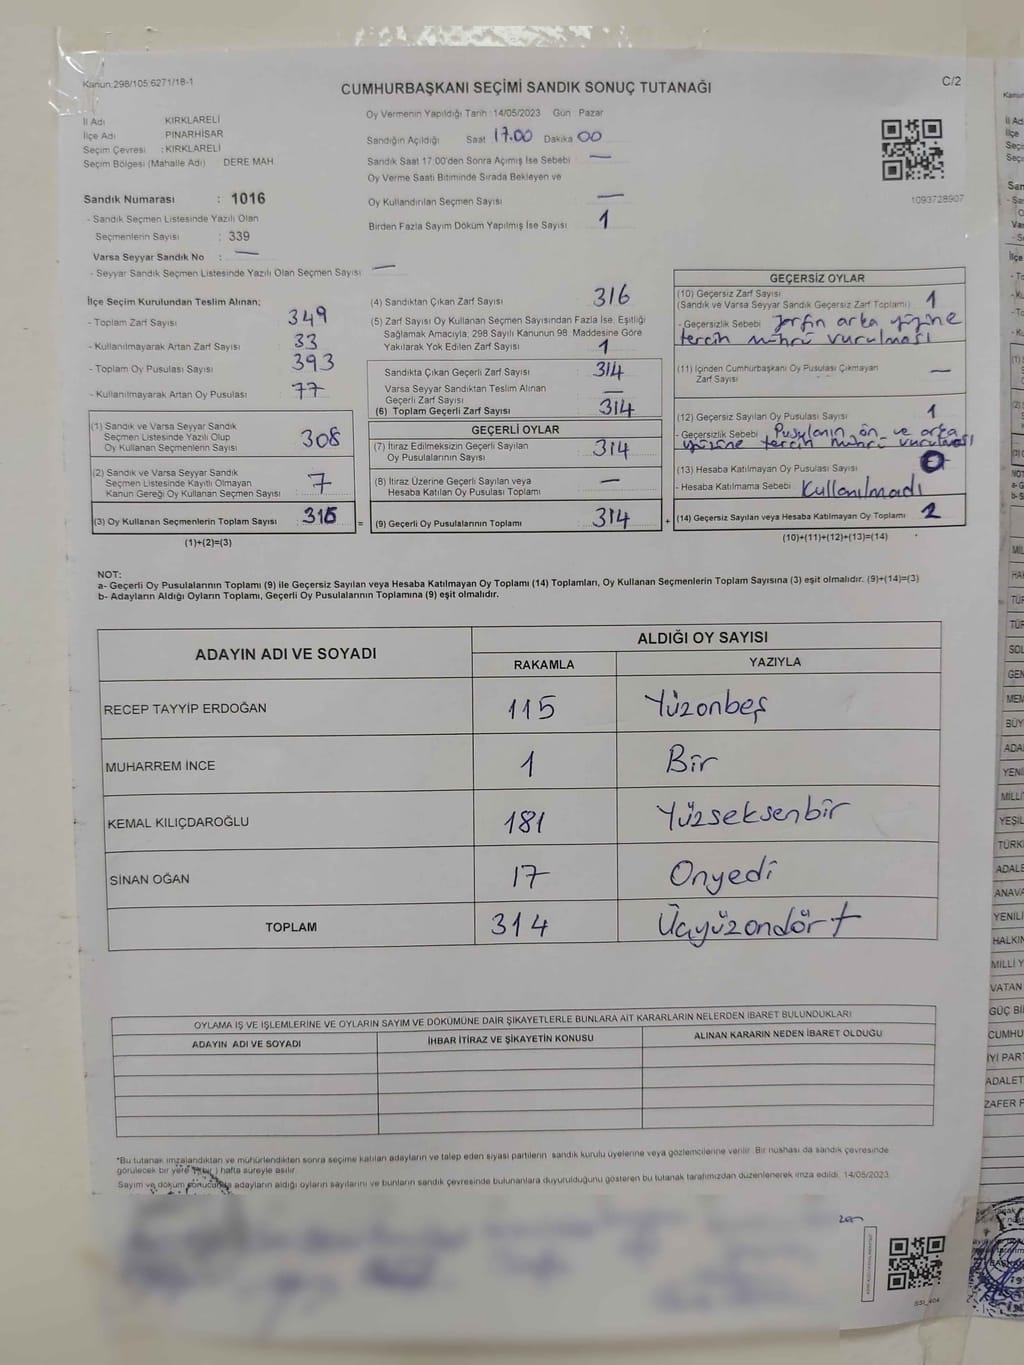 Kanun:298/105:6271/18-1
CUMHURBAŞKANI SEÇİMİ SANDIK SONUÇ TUTANAĞI
C/2
İl Adı KIRKLARELİ
İlçe Adı PINARHİSAR
Seçim Çevresi : KIRKLARELİ
Seçim Bölgesi (Mahalle Adı) DERE MAH.
Sandık Numarası : 1016
- Sandık Seçmen Listesinde Yazılı Olan
Seçmenlerin Sayısı : 339
Varsa Seyyar Sandık No : —
- Seyyar Sandık Seçmen Listesinde Yazılı Olan Seçmen Sayısı —
Oy Vermenin Yapıldığı Tarih : 14/05/2023 Gün Pazar
Sandığın Açıldığı Saat 17.00 Dakika 00
Sandık Saat 17:00'den Sonra Açımış İse Sebebi —
Oy Verme Saati Bitiminde Sırada Bekleyen ve
Oy Kullandırılan Seçmen Sayısı —
Birden Fazla Sayım Döküm Yapılmış İse Sayısı 1
1093728907
İlçe Seçim Kurulundan Teslim Alınan;
- Toplam Zarf Sayısı 349
- Kullanılmayarak Artan Zarf Sayısı 33
- Toplam Oy Pusulası Sayısı 393
- Kullanılmayarak Artan Oy Pusulası 77
(1) Sandık ve Varsa Seyyar Sandık
Seçmen Listesinde Yazılı Olup
Oy Kullanan Seçmenlerin Sayısı 308
(2) Sandık ve Varsa Seyyar Sandık
Seçmen Listesinde Kayıtlı Olmayan
Kanun Gereği Oy Kullanan Seçmen Sayısı 7
(3) Oy Kullanan Seçmenlerin Toplam Sayısı : 316 =
(1)+(2)=(3)
(4) Sandıktan Çıkan Zarf Sayısı 316
(5) Zarf Sayısı Oy Kullanan Seçmen Sayısından Fazla İse, Eşitliği
Sağlamak Amacıyla, 298 Sayılı Kanunun 98. Maddesine Göre
Yakılarak Yok Edilen Zarf Sayısı 1
Sandıkta Çıkan Geçerli Zarf Sayısı 314
Varsa Seyyar Sandıktan Teslim Alınan
Geçerli Zarf Sayısı —
(6) Toplam Geçerli Zarf Sayısı 314
GEÇERLİ OYLAR
(7) İtiraz Edilmeksizin Geçerli Sayılan
Oy Pusulalarının Sayısı 314
(8) İtiraz Üzerine Geçerli Sayılan veya
Hesaba Katılan Oy Pusulası Toplamı —
(9) Geçerli Oy Pusulalarının Toplamı 314 +
GEÇERSİZ OYLAR
(10) Geçersiz Zarf Sayısı
(Sandık ve Varsa Seyyar Sandık Geçersiz Zarf Toplamı) 1
- Geçersizlik Sebebi Zarfın arka yüzüne
tercih mührü vurulması
(11) İçinden Cumhurbaşkanı Oy Pusulası Çıkmayan
Zarf Sayısı —
(12) Geçersiz Sayılan Oy Pusulası Sayısı 1
- Geçersizlik Sebebi Pusulanın ön ve arka
yüzüne tercih mührü vurulması
(13) Hesaba Katılmayan Oy Pusulası Sayısı 0
- Hesaba Katılmama Sebebi Kullanılmadı
(14) Geçersiz Sayılan veya Hesaba Katılmayan Oy Toplamı 2
(10)+(11)+(12)+(13)=(14)
NOT:
a- Geçerli Oy Pusulalarının Toplamı (9) ile Geçersiz Sayılan veya Hesaba Katılmayan Oy Toplamı (14) Toplamları, Oy Kullanan Seçmenlerin Toplam Sayısına (3) eşit olmalıdır. (9)+(14)=(3)
b- Adayların Aldığı Oyların Toplamı, Geçerli Oy Pusulalarının Toplamına (9) eşit olmalıdır.
ADAYIN ADI VE SOYADI ALDIĞI OY SAYISI
RAKAMLA YAZIYLA
RECEP TAYYİP ERDOĞAN 115 Yüzonbeş
MUHARREM İNCE 1 Bir
KEMAL KILIÇDAROĞLU 181 Yüzseksenbir
SİNAN OĞAN 17 Onyedi
TOPLAM 314 Üçyüzondört
OYLAMA İŞ VE İŞLEMLERİNE VE OYLARIN SAYIM VE DÖKÜMÜNE DAİR ŞİKAYETLERLE BUNLARA AİT KARARLARIN NELERDEN İBARET BULUNDUKLARI
ADAYIN ADI VE SOYADI İHBAR İTİRAZ VE ŞİKAYETİN KONUSU ALINAN KARARIN NEDEN İBARET OLDUĞU
*Bu tutanak imzalandıktan ve mühürlendikten sonra seçime katılan adayların ve talep eden siyasi partilerin sandık kurulu üyelerine veya gözlemcilerine verilir. Bir nüshası da sandık çevresinde
görülecek bir yere (bir) hafta süreyle asılır.
Sayım ve döküm sonucunda adayların aldığı oyların sayılarını ve bunların sandık çevresinde bulunanlara duyurulduğunu gösteren bu tutanak tarafımızdan düzenlenerek imza edildi. 14/05/2023